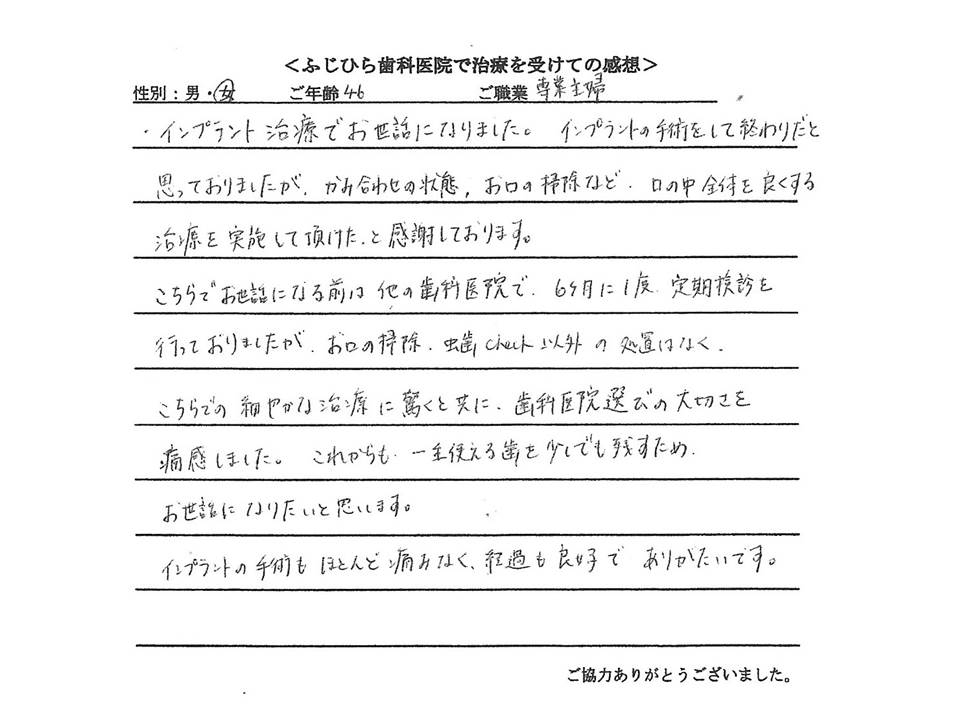 ＜ふじひら歯科医院で治療を受けての感想＞
性別：男・女 ご年齢 46 ご職業 専業主婦
・インプラント治療でお世話になりました。 インプラントの手術をして終わりだと
思っておりましたが、かみ合わせの状態，お口の掃除など、口の中全体を良くする
治療を実施して頂けたと感謝しております。
こちらでお世話になる前は他の歯科医院で、6ヶ月に1度、定期検診を
行っておりましたが、お口の掃除、虫歯check以外の処置はなく、
こちらでの細やかな治療に驚くと共に、歯科医院選びの大切さを
痛感しました。 これからも、一生使える歯を少しでも残すため、
お世話になりたいと思います。
インプラントの手術もほとんど痛みなく、経過も良好でありがたいです。
ご協力ありがとうございました。